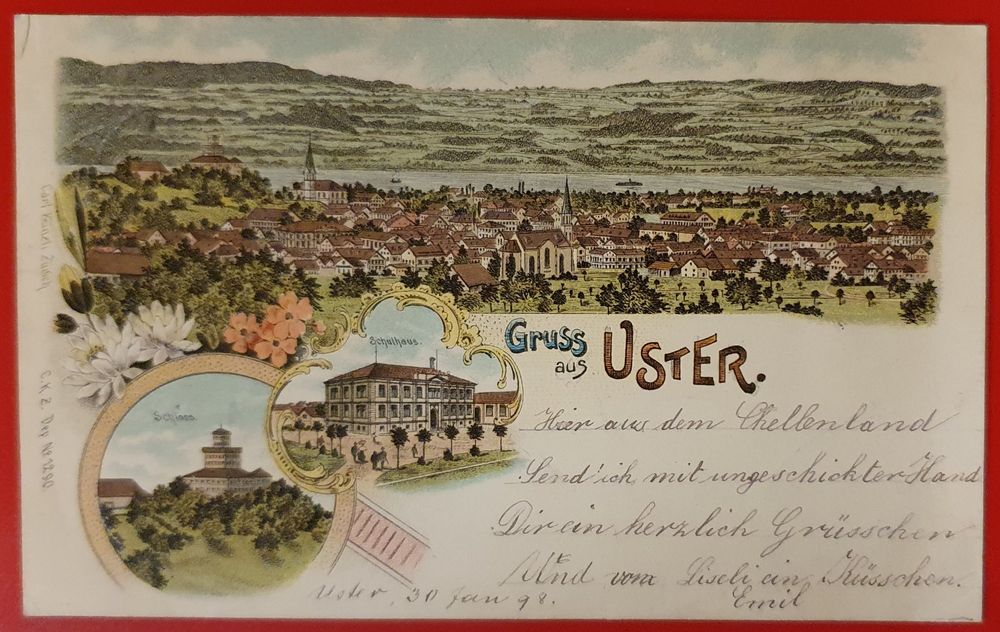 Gruss
aus USTER.
Schulhaus.
Schloss.
Hier aus dem Chellenland
Send' ich mit ungeschickter Hand
Dir ein herzlich Grüsschen
Und vom Liseli ein Küsschen.
Emil
Uster, 30 Jan 98.
Carl Künzli Zürich
C.K.Z. Dep No 1290